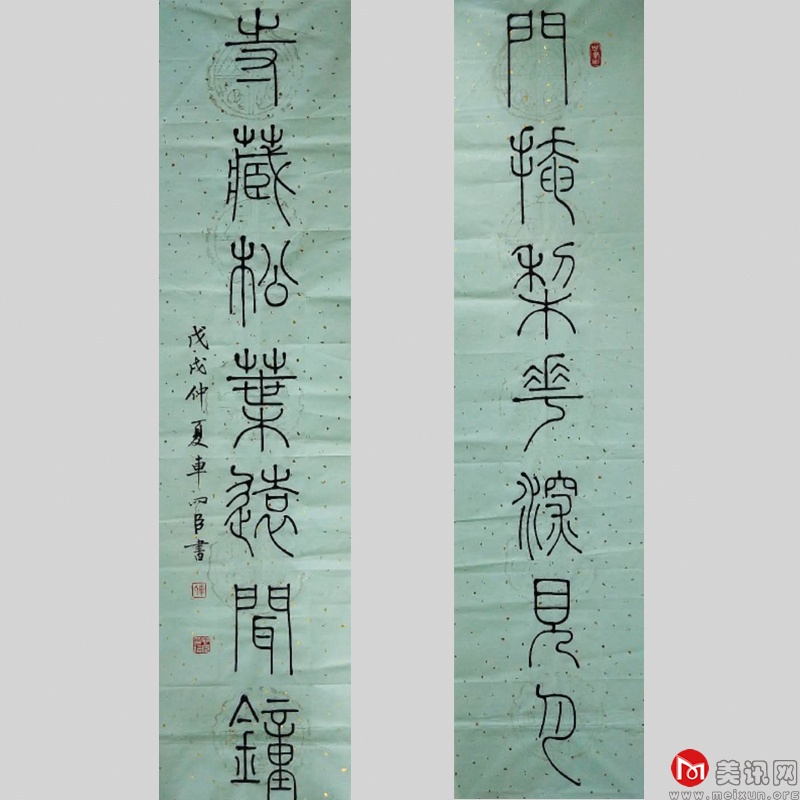 門掩梨花深見月
寺藏松葉遠聞鐘
戊戌仲夏車臣書
美讯网
www.meixun.org